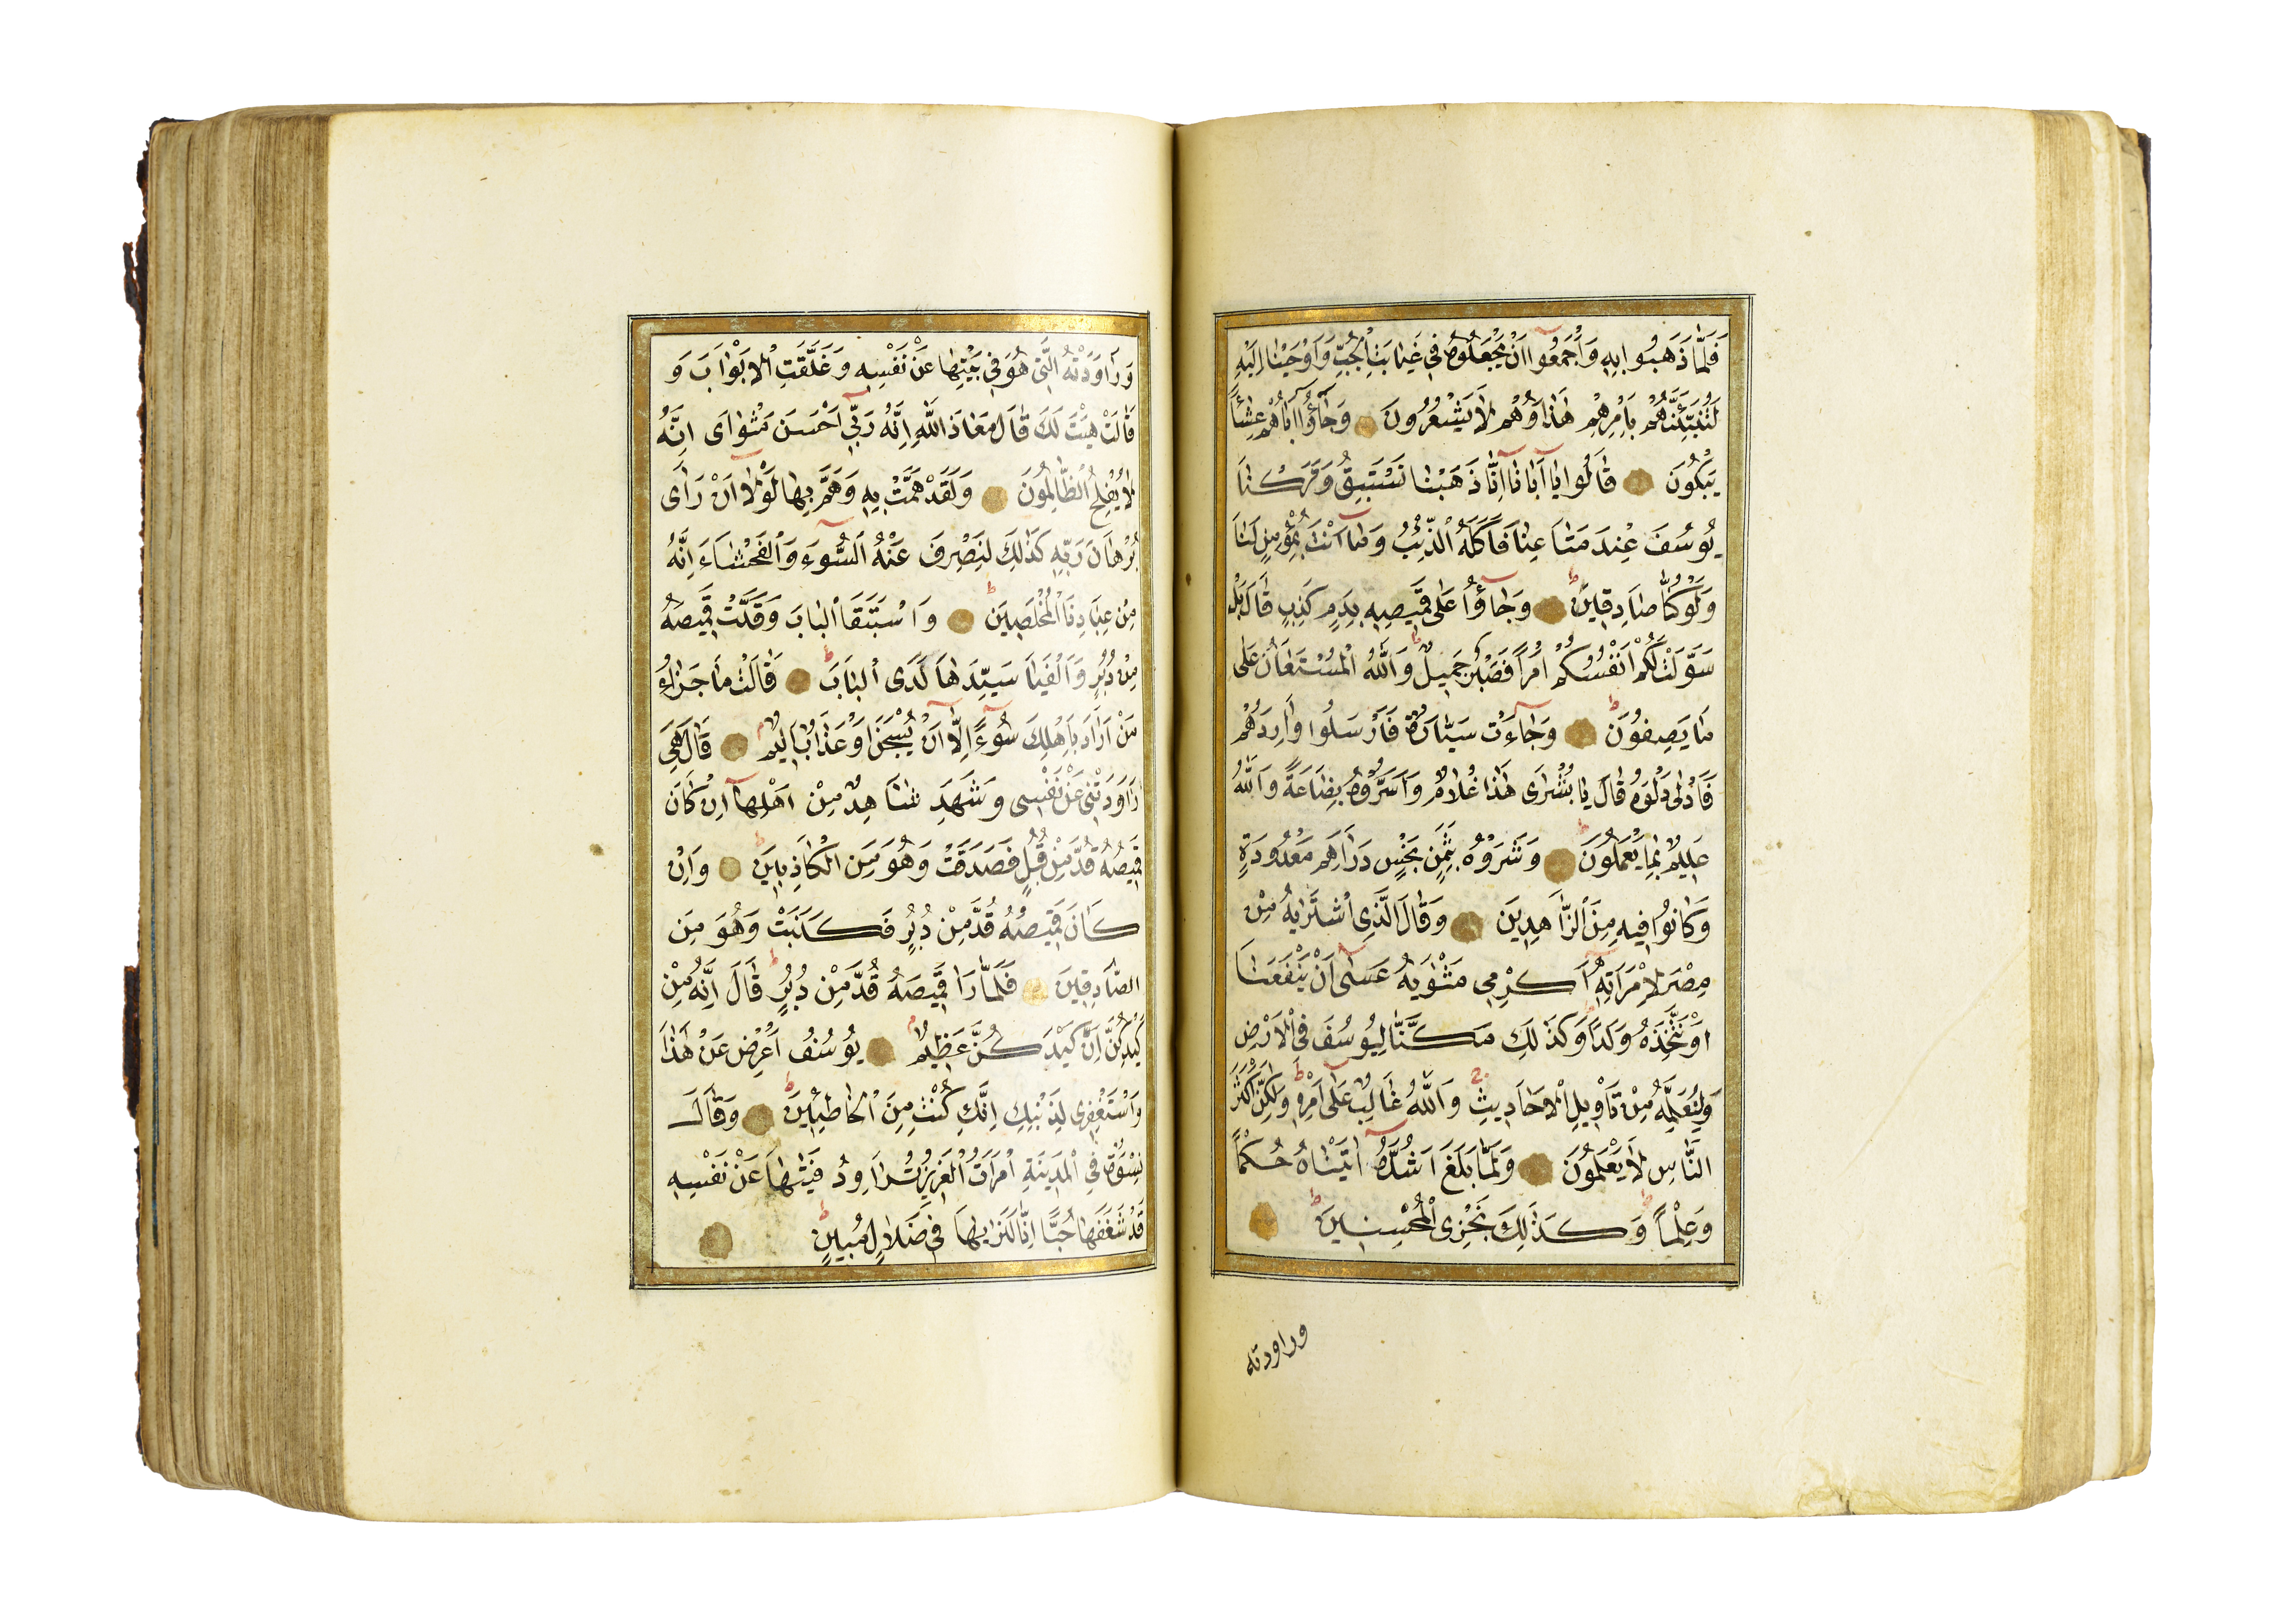 فَلَمَّا ذَهَبُوا بِهِ وَاَجْمَعُوا اَنْ يَجْعَلُوهُ فِي غَيَابَتِ الْجُبِّ وَاَوْحَيْنَا اِلَيْهِ
لَتُنَبِّئَنَّهُمْ بِاَمْرِهِمْ هٰذَا وَهُمْ لَا يَشْعُرُونَ وَجَاؤُا اَبَاهُمْ عِشَاءً
يَبْكُونَ قَالُوا يَا اَبَانَا اِنَّا ذَهَبْنَا نَسْتَبِقُ وَتَرَكْنَا
يُوسُفَ عِنْدَ مَتَاعِنَا فَاَكَلَهُ الذِّئْبُ وَمَا اَنْتَ بِمُؤْمِنٍ لَنَا
وَلَوْ كُنَّا صَادِقِينَ وَجَاؤُا عَلٰى قَمِيصِهِ بِدَمٍ كَذِبٍ قَالَ بَلْ
سَوَّلَتْ لَكُمْ اَنْفُسُكُمْ اَمْرًا فَصَبْرٌ جَمِيلٌ وَاللّٰهُ الْمُسْتَعَانُ عَلٰى
مَا يَصِفُونَ وَجَاءَتْ سَيَّارَةٌ فَاَرْسَلُوا وَارِدَهُمْ
فَاَدْلٰى دَلْوَهُ قَالَ يَا بُشْرٰى هٰذَا غُلَامٌ وَاَسَرُّوهُ بِضَاعَةً وَاللّٰهُ
عَلِيمٌ بِمَا يَعْمَلُونَ وَشَرَوْهُ بِثَمَنٍ بَخْسٍ دَرَاهِمَ مَعْدُودَةٍ
وَكَانُوا فِيهِ مِنَ الزَّاهِدِينَ وَقَالَ الَّذِي اشْتَرٰيهُ مِنْ
مِصْرَ لِامْرَاَتِهِ اَكْرِمِي مَثْوٰيهُ عَسٰى اَنْ يَنْفَعَنَا
اَوْ نَتَّخِذَهُ وَلَدًا وَكَذٰلِكَ مَكَّنَّا لِيُوسُفَ فِي الْاَرْضِ
وَلِنُعَلِّمَهُ مِنْ تَاْوِيلِ الْاَحَادِيثِ وَاللّٰهُ غَالِبٌ عَلٰى اَمْرِهِ وَلٰكِنَّ اَكْثَرَ
النَّاسِ لَا يَعْلَمُونَ وَلَمَّا بَلَغَ اَشُدَّهُ اٰتَيْنَاهُ حُكْمًا
وَعِلْمًا وَكَذٰلِكَ نَجْزِي الْمُحْسِنِينَ
وراودته
وَرَاوَدَتْهُ الَّتِي هُوَ فِي بَيْتِهَا عَنْ نَفْسِهِ وَغَلَّقَتِ الْاَبْوَابَ وَ
قَالَتْ هَيْتَ لَكَ قَالَ مَعَاذَ اللّٰهِ اِنَّهُ رَبِّي اَحْسَنَ مَثْوَاىَ اِنَّهُ
لَا يُفْلِحُ الظَّالِمُونَ وَلَقَدْ هَمَّتْ بِهِ وَهَمَّ بِهَا لَوْلَا اَنْ رَاٰى
بُرْهَانَ رَبِّهِ كَذٰلِكَ لِنَصْرِفَ عَنْهُ السُّوءَ وَالْفَحْشَاءَ اِنَّهُ
مِنْ عِبَادِنَا الْمُخْلَصِينَ وَاسْتَبَقَا الْبَابَ وَقَدَّتْ قَمِيصَهُ
مِنْ دُبُرٍ وَاَلْفَيَا سَيِّدَهَا لَدَى الْبَابِ قَالَتْ مَا جَزَاءُ
مَنْ اَرَادَ بِاَهْلِكَ سُوءًا اِلَّا اَنْ يُسْجَنَ اَوْ عَذَابٌ اَلِيمٌ قَالَ هِيَ
رَاوَدَتْنِي عَنْ نَفْسِي وَشَهِدَ شَاهِدٌ مِنْ اَهْلِهَا اِنْ كَانَ
قَمِيصُهُ قُدَّ مِنْ قُبُلٍ فَصَدَقَتْ وَهُوَ مِنَ الْكَاذِبِينَ وَاِنْ
كَانَ قَمِيصُهُ قُدَّ مِنْ دُبُرٍ فَكَذَبَتْ وَهُوَ مِنَ
الصَّادِقِينَ فَلَمَّا رَاٰ قَمِيصَهُ قُدَّ مِنْ دُبُرٍ قَالَ اِنَّهُ مِنْ
كَيْدِكُنَّ اِنَّ كَيْدَكُنَّ عَظِيمٌ يُوسُفُ اَعْرِضْ عَنْ هٰذَا
وَاسْتَغْفِرِي لِذَنْبِكِ اِنَّكِ كُنْتِ مِنَ الْخَاطِئِينَ وَقَالَ
نِسْوَةٌ فِي الْمَدِينَةِ امْرَاَتُ الْعَزِيزِ تُرَاوِدُ فَتٰيهَا عَنْ نَفْسِهِ
قَدْ شَغَفَهَا حُبًّا اِنَّا لَنَرٰيهَا فِي ضَلَالٍ مُبِينٍ